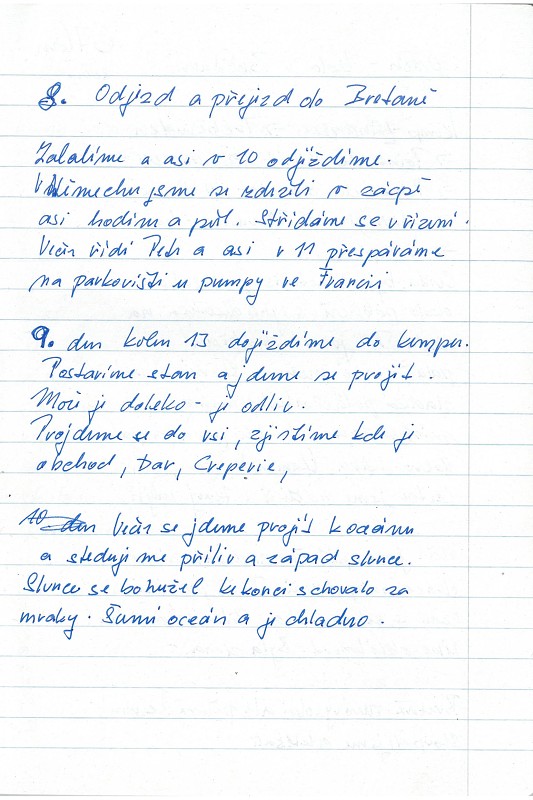 8. Odjezd a přejezd do Bretaně
Zabalíme a asi v 10 odjíždíme.
V Německu jsme se zdrželi v zácpě
asi hodinu a půl. Střídáme se v řízení.
Večer řídí Petr a asi v 11 přespáváme
na parkovišti u pumpy ve Francii
9. den kolem 13 dojíždíme do kempu.
Postavíme stan a jdeme se projít.
Moře je daleko - je odliv.
Projdeme se do vsi, zjistíme kde je
obchod, bar, Creperie,
10 den Večer se jdeme projít k oceánu
a sledujeme příliv a západ slunce.
Slunce se bohužel ke konci schovalo za
mraky. Šumí oceán a je chladno.